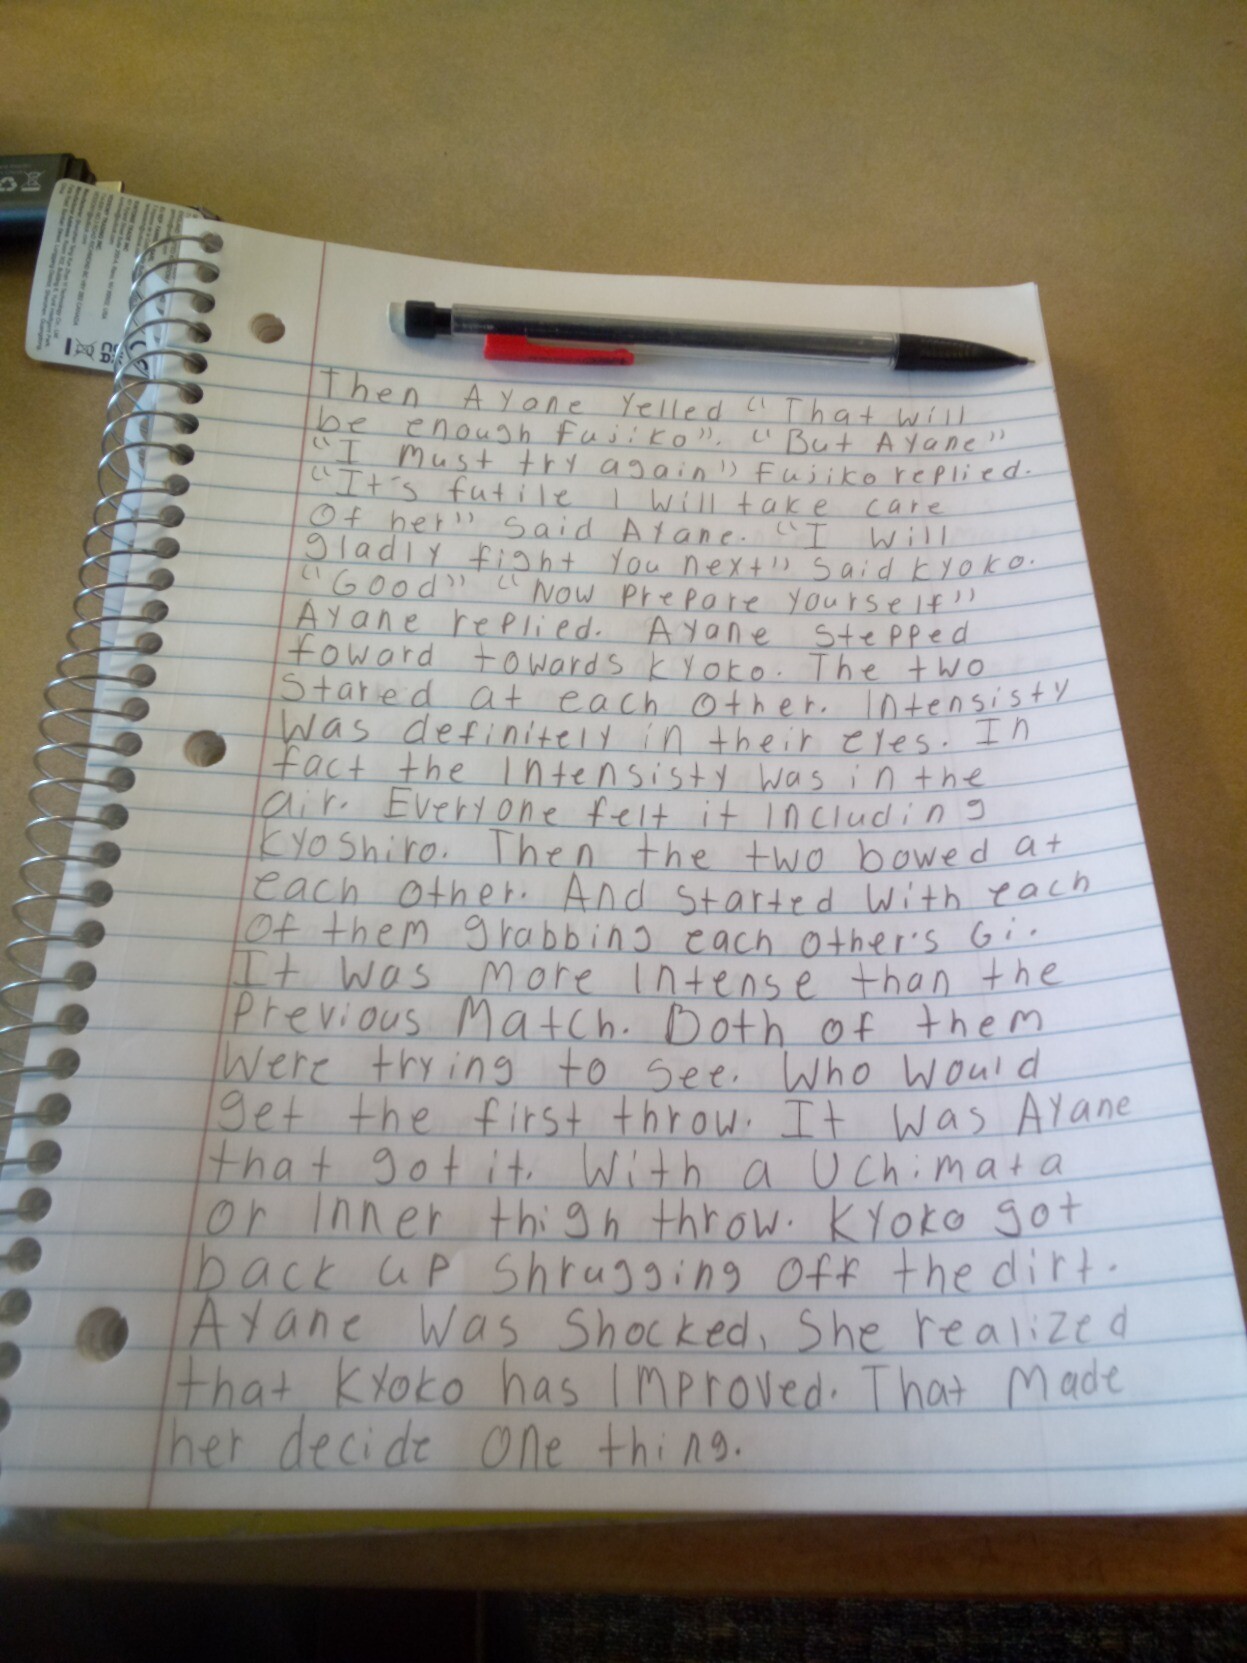 Then Ayane Yelled "That Will
be enough Fujiko". "But Ayane"
"I Must try again" Fujiko replied.
"It's futile I Will take care
Of her" Said Ayane. "I Will
gladly fight You next" Said Kyoko.
"Good" "Now Prepare Yourself"
Ayane replied. Ayane Stepped
foward towards Kyoko. The two
Stared at each Other. Intensisty
Was definitely in their eyes. In
fact the Intensisty Was in the
air. Everyone felt it Including
Kyoshiro. Then the two bowed at
each Other. And Started With each
Of them grabbing each Other's Gi.
It Was More Intense than the
Previous Match. Both of them
Were trying to See. Who Would
get the first throw. It Was Ayane
that got it. With a Uchimata
or Inner thigh throw. Kyoko got
back up Shrugging Off the dirt.
Ayane Was Shocked, She realized
that Kyoko has Improved. That Made
her decide One thing.